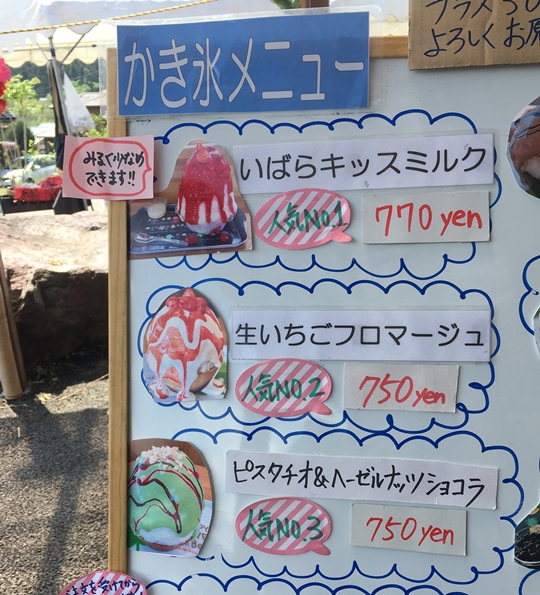 プラス50
よろしくお願
かき氷メニュー
みるく少なめ
できます!!
いばらキッスミルク
人気No.1
770yen
生いちごフロマージュ
人気NO.2
750yen
ピスタチオ&ヘーゼルナッツショコラ
人気NO.3
750yen
注文を受けてから